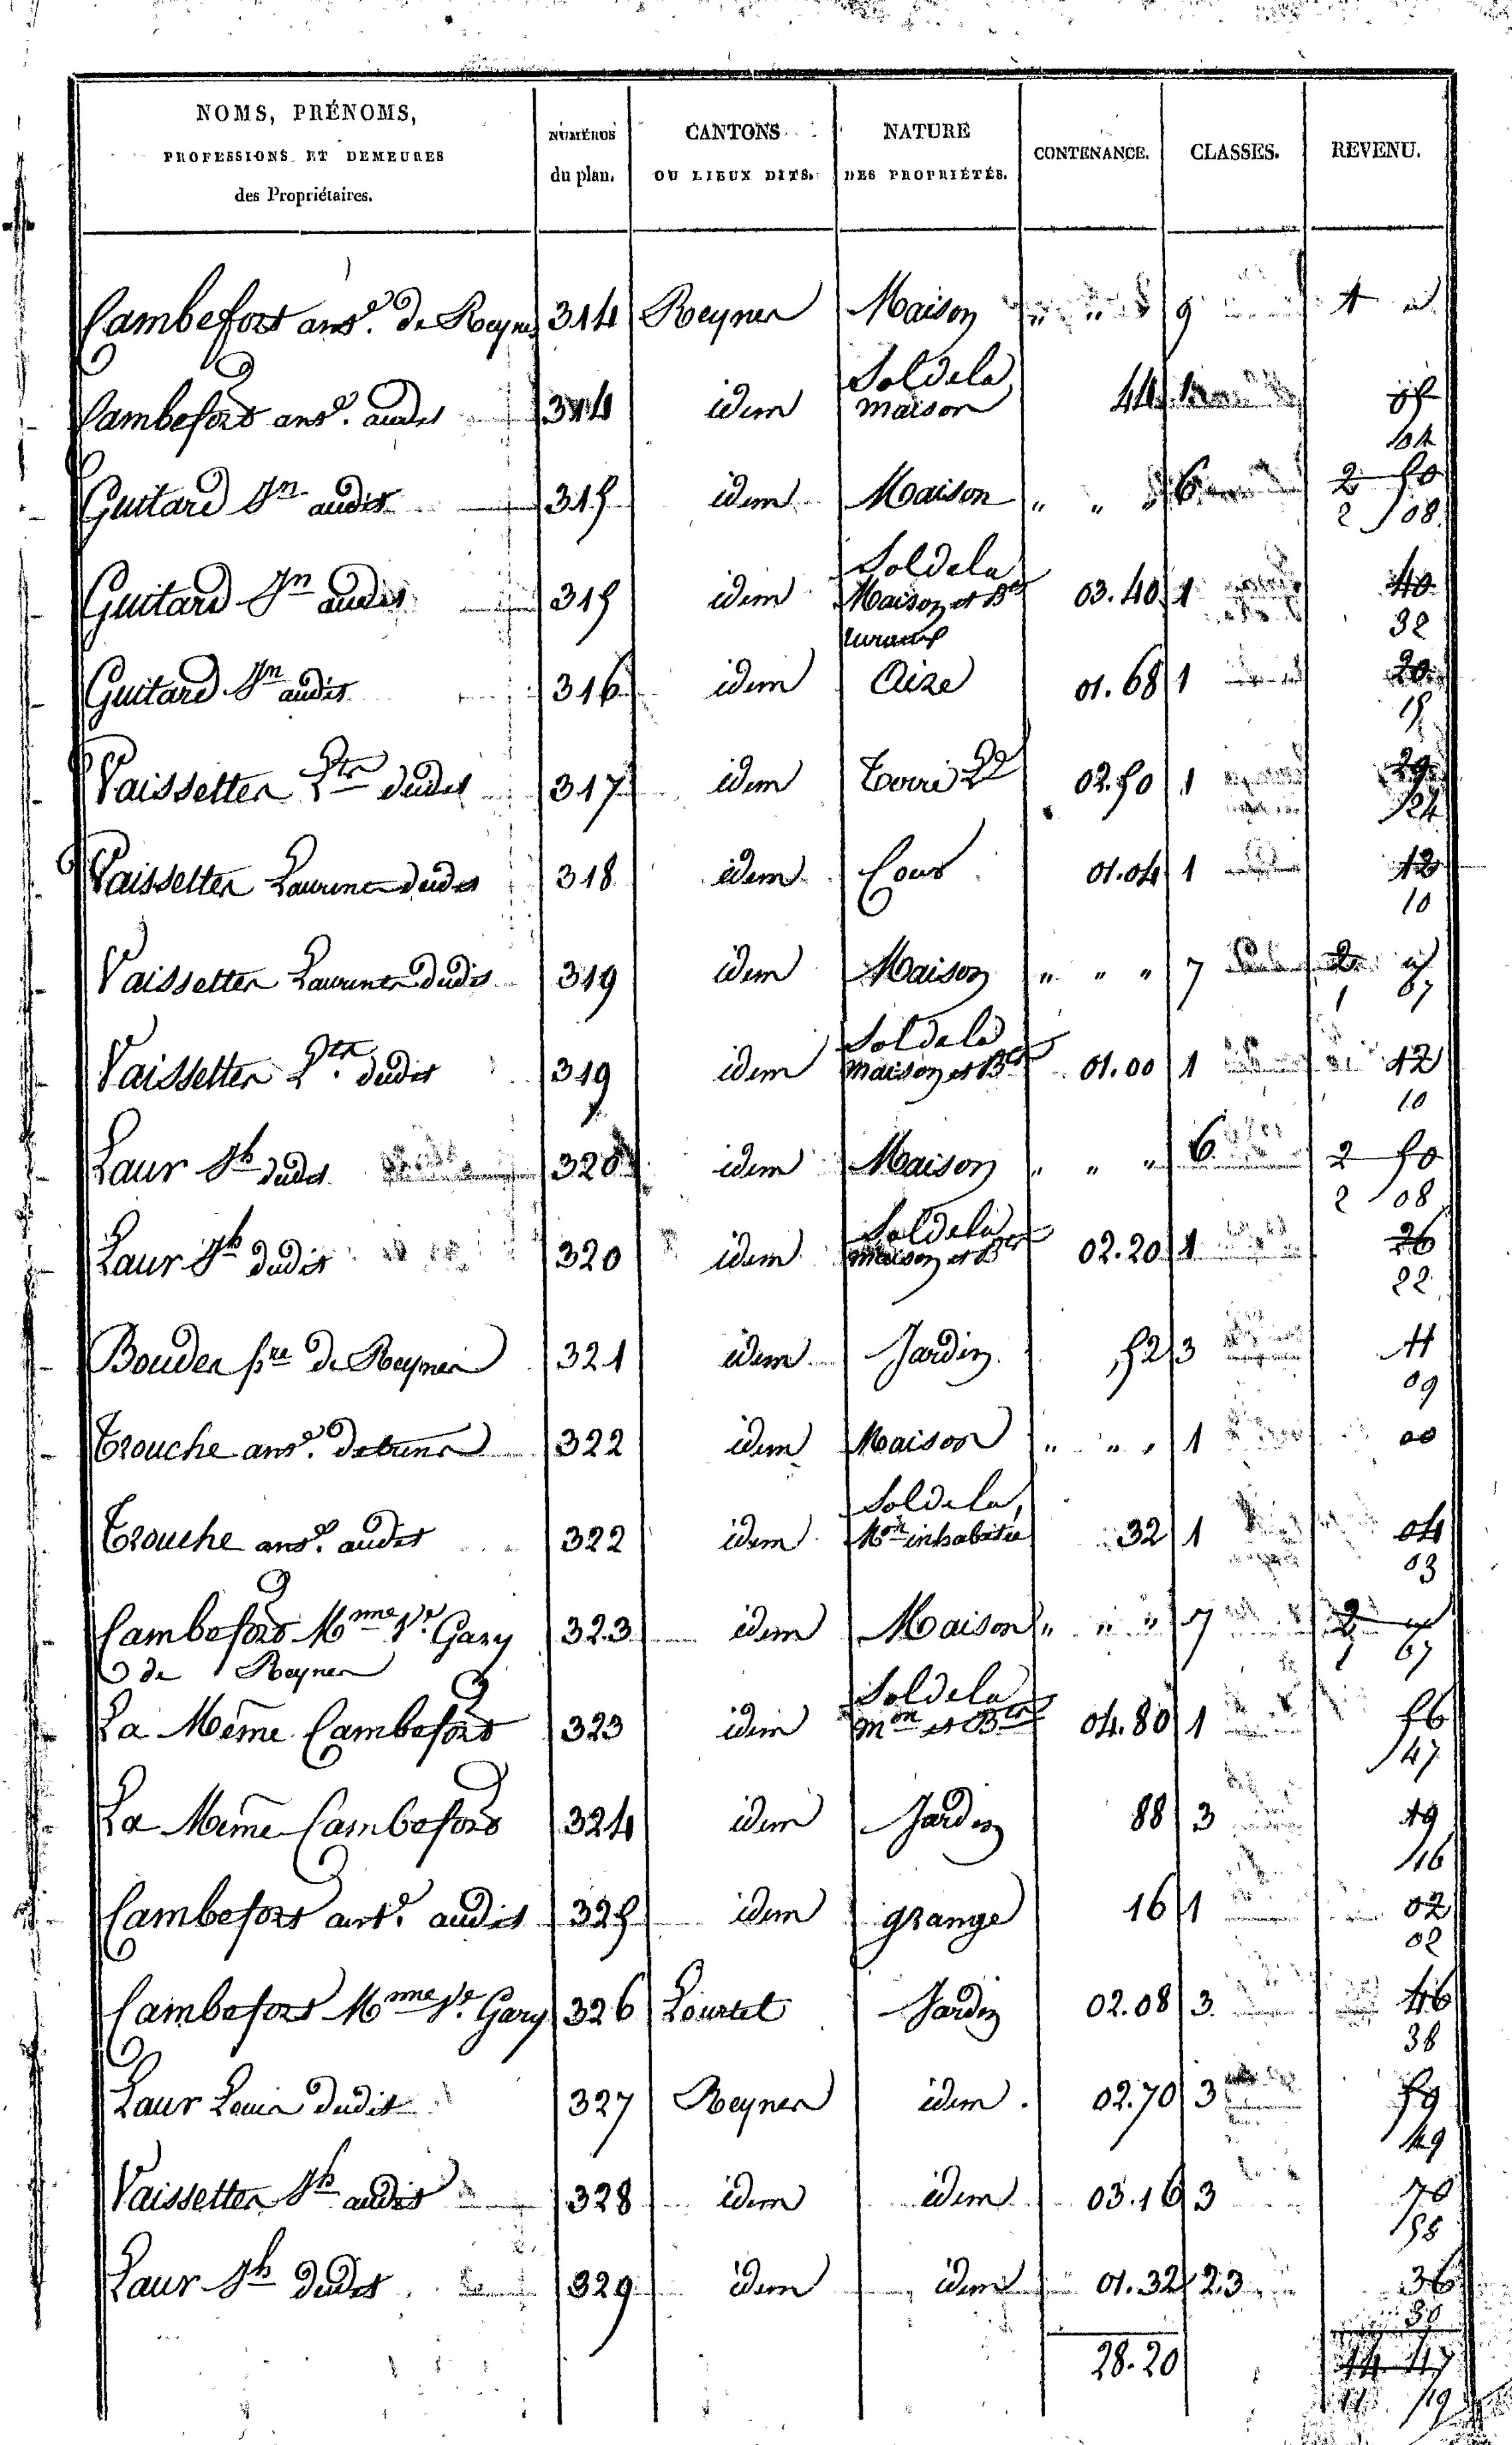 NOMS, PRÉNOMS, PROFESSIONS ET DEMEURES des Propriétaires. NUMÉROS du plan. CANTONS OU LIEUX DITS. NATURE DES PROPRIÉTÉS. CONTENANCE. CLASSES. REVENU.
Cambefort ant.e de Reynes 314 Reynes Maison " " " 9 1 "
Cambefort ant.e audit 314 idem Sol de la maison 44 1 05
04
Guitard Jn audit 315 idem Maison " " " 6 2 50
2 08
Guitard Jn audit 315 idem Sol de la Maison et Bt 03.40 1 40
32
Guitard Jn audit 316 idem Aire 01.68 1 20
15
Vaissettes dudit 317 idem 02.50 1 29
24
Vaissettes Laurent dudit 318 idem Cour 01.04 1 12
10
Vaissettes Laurent dudit 319 idem Maison " " " 7 2 "
1 67
Vaissettes dudit 319 idem Sol de la maison et Bt 01.00 1 12
10
Laur Jh dudit 320 idem Maison " " " 6 2 50
2 08
Laur Jh dudit 320 idem Sol de la maison et Bt 02.20 1 26
22
Boudes de Reynes 321 idem Jardin 52 3 11
09
Trouche ant.e 322 idem Maison " " " 1 00
Trouche ant.e audit 322 idem Sol de la Mon inhabitée 32 1 04
03
Cambefort Mnne Ve Gary 323 idem Maison " " " 7 2 "
de Reynes 1 67
La Même Cambefort 323 idem Sol de la mon et Bt 04.80 1 56
47
La Même Cambefort 324 idem Jardin 88 3 19
16
Cambefort ant.e audit 325 idem grange 16 1 02
02
Cambefort Mnne Ve Gary 326 Lourtet Jardin 02.08 3 46
38
Laur Louis dudit 327 Reynes idem 02.70 3 59
49
Vaissettes Jh audit 328 idem idem 03.16 3 70
58
Laur Jh dudit 329 idem idem 01.32 2.3 36
30
28.20 14 47
11 19